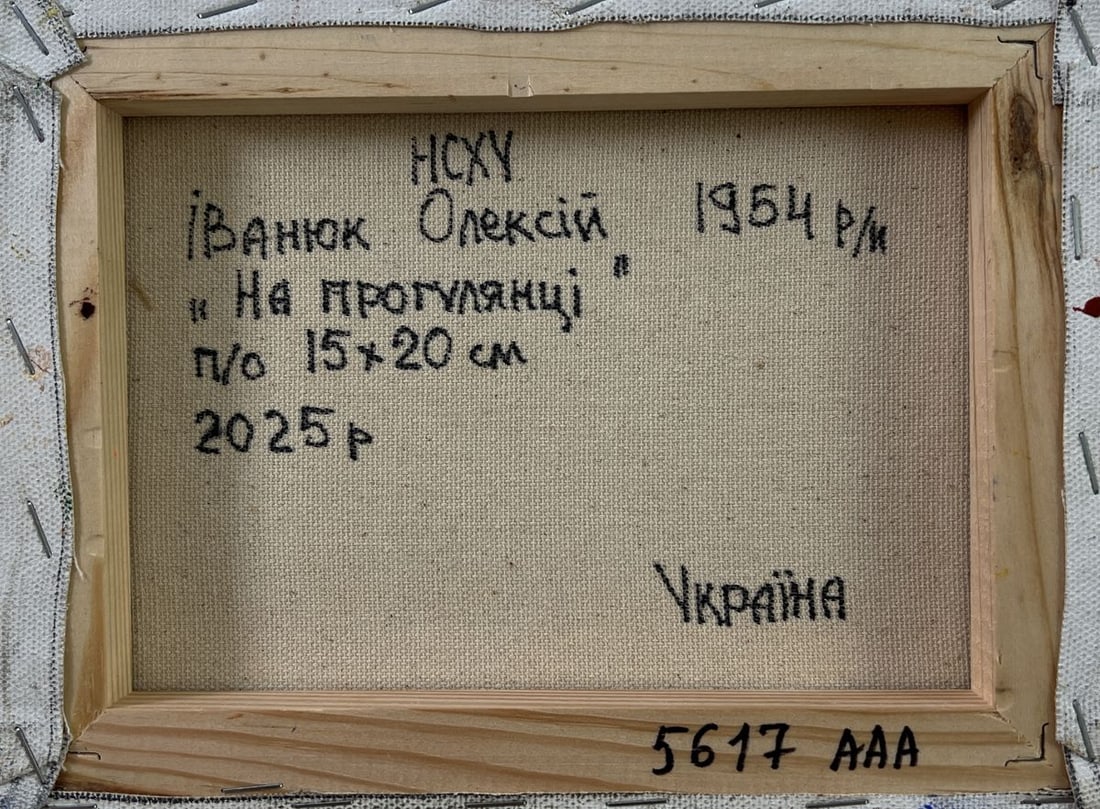 НСХУ
Іванюк Олексій 1954 р/н
„ На прогулянці "
п/о 15×20 см
2025 р
Україна
5617 ААА